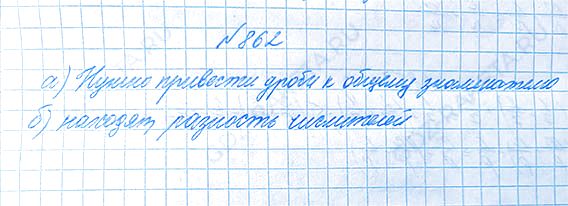 №862
а) Нужно привести дроби к общему знаменателю
б) находят разность числителей